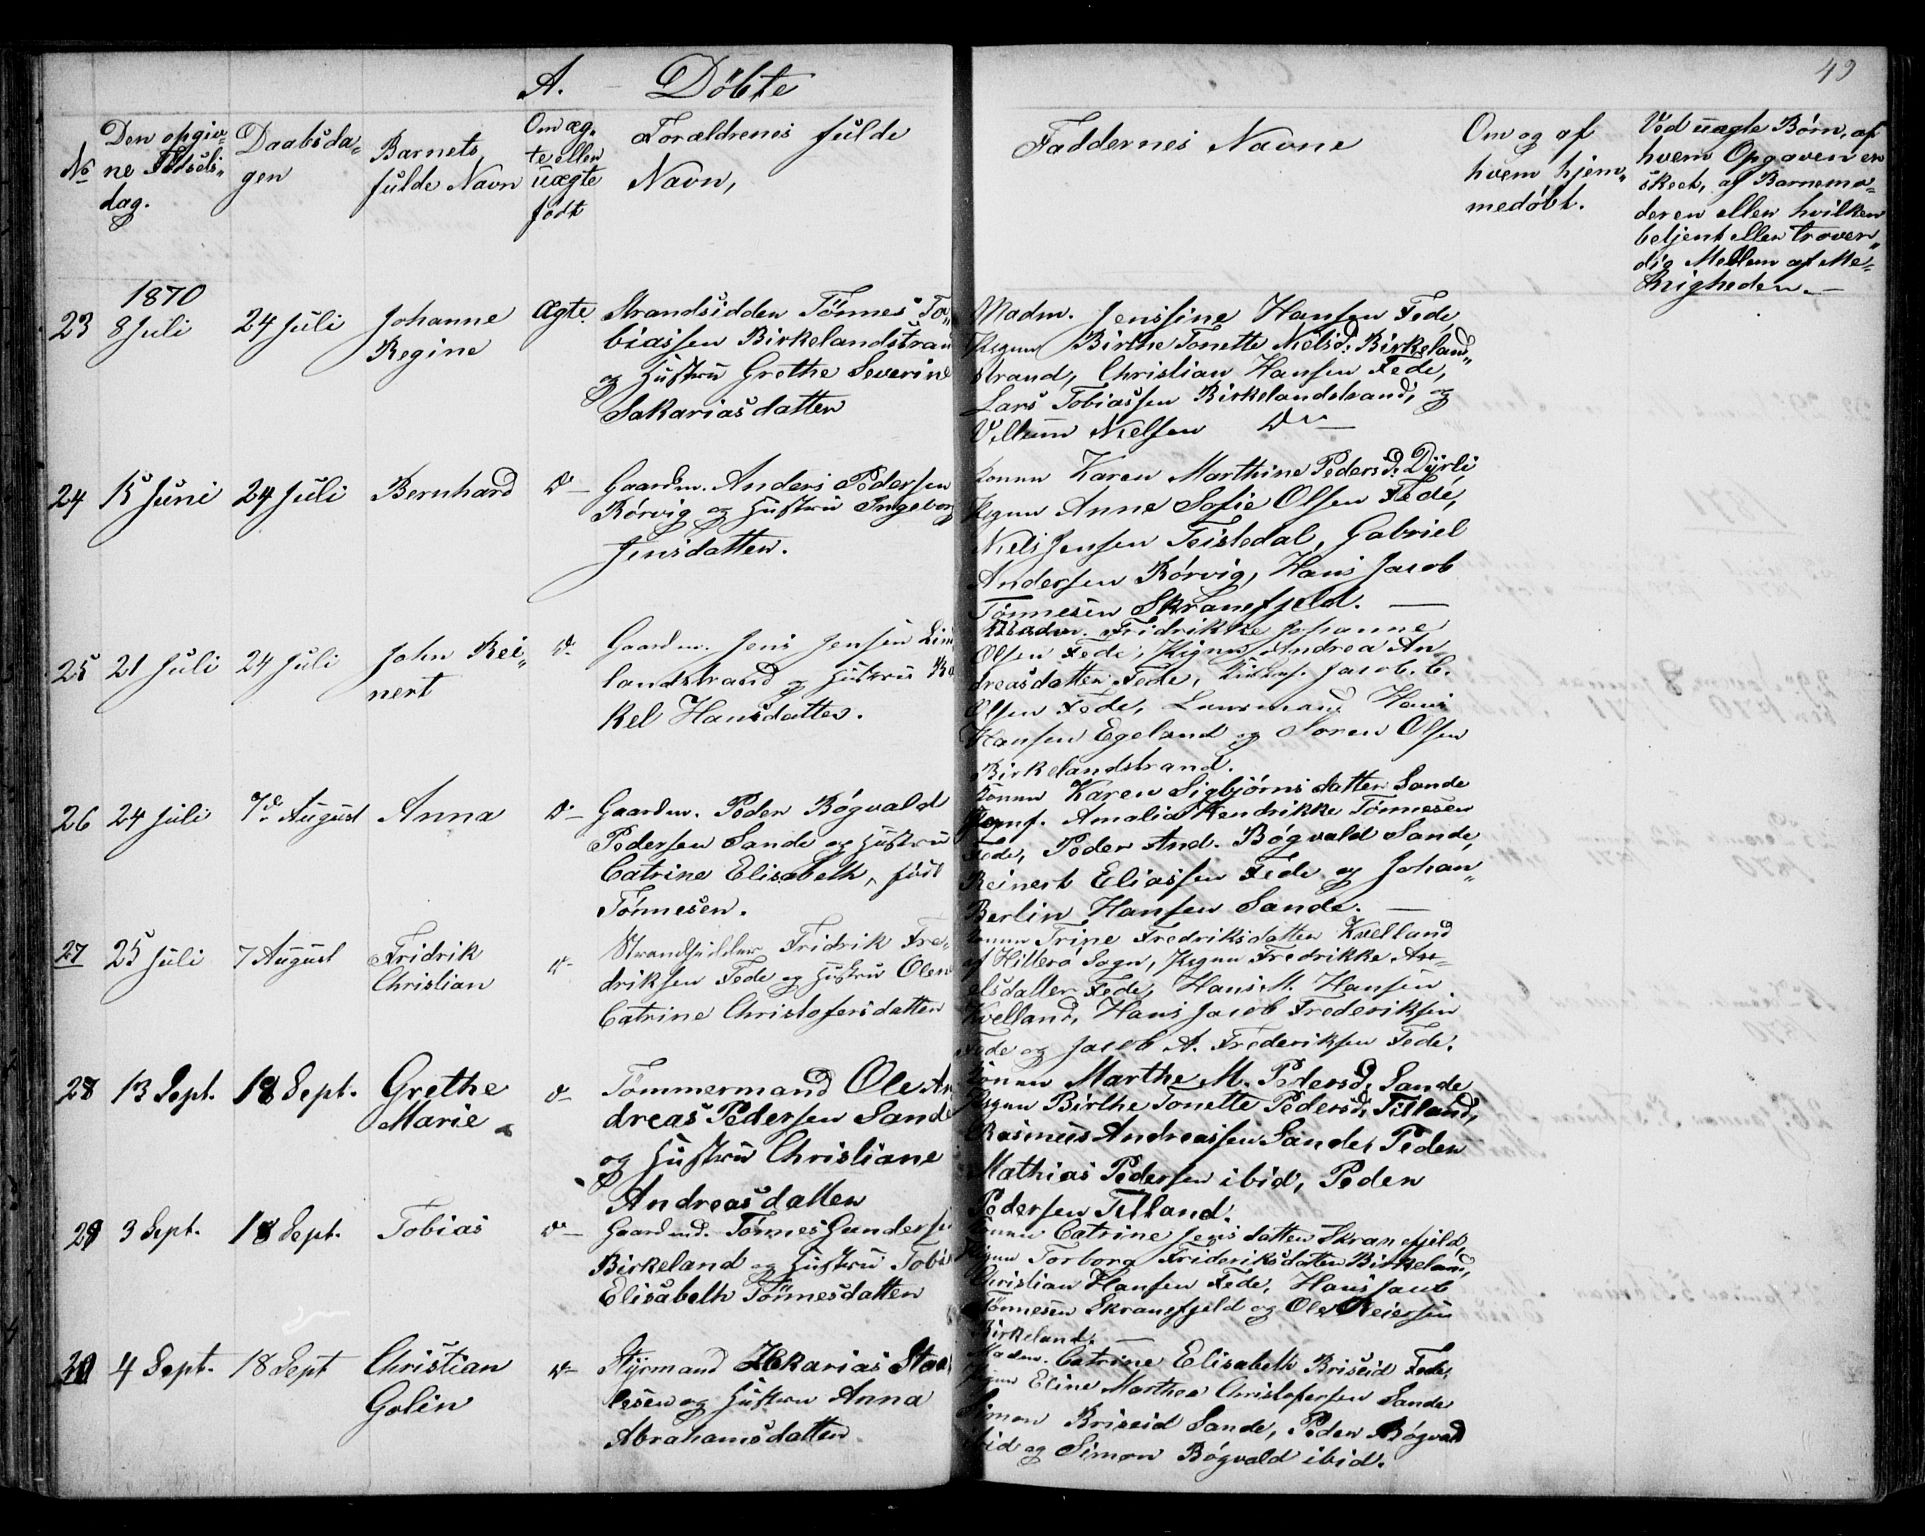 A. Döbte
49
No
Den opgiv-
ne Fødsels-
dag.
Daabsda-
gen
Barnets
fulde Navn
Om æg-
te eller
uægte
født
Forældrenes fulde
Navn,
Faddernes Navne
Om og af
hvem hjem-
medöbt.
Ved uægte Børn, af
hvem Opgaven er
skeet, af Barnemo-
deren eller hvilken
betjent eller trover-
dig Medlem af Me-
nigheden.
1870
23 8 Juli 24 Juli Johanne
Regine
Ægte.
Strandsidden Tönnes To-
biassen Birkelandstran
og Hustru Grethe Severine
Sakariasdatter
Madm. Jenssine Hansen Fede,
Pigen Birthe Tonette Nielsd. Birkeland-
strand, Christian Hansen Fede,
Lars Tobiassen Birkelandstrand, og
Villum Nielsen Do
24 15 Juni 24 Juli Bernhard Do
Gaardm. Anders Pedersen
Rörvig og Hustru Ingeborg
Jensdatter.
Konen Karen Marthine Pedersd. Dyrli,
Pigen Anne Sofie Olsen Fede,
Niels Jensen Feistedal, Gabriel
Andersen Rörvig, Hans Jacob
Tönnesen Skranefjeld.
25 21 Juli 24 Juli John Rei-
nert
Do
Gaardm. Jens Jensen Lin
landstrand og Hustru Ra
kel Hansdatter.
Madm. Fridrikke Johanne
Olsen Fede, Pigen Andrea An-
dreasdatter Fede, Jacob C.
Olsen Fede, Lensmand Hans
Hansen Egeland og Sören Olsen
Birkelandstrand.
26 24 Juli 7de August Anna Do
Gaardm. Peder Bögvald
Pedersen Sande og Hustru
Catrine Elisabeth, född
Tönnesen.
Konen Karen Sigbjörnsdatter Sande
Jomf. Amalia Hendrikke Tönnesen
Fede, Peder And. Bögvald Sande,
Reinert Eliassen Fede og Johan
Berlin Hansen Sande.
27 25 Juli 7 August Fridrik
Christian
Do
Strandsidder Fridrik Fre-
driksen Fede og Hustru Olene
Catrine Christofersdatter
Konen Trine Fredriksdatter Kvelland
af Hitterö Sogn, Pigen Fredrikke Ax-
elsdatter Fede, Hans M. Hansen
Kvelland, Hans Jacob Frederiksen
Fede og Jacob A. Frederiksen Fede.
28 13 Sept. 18 Sept. Grethe
Marie
Do
Tömmermand Ole An
dreas Pedersen Sande
og Hustru Christiane
Andreasdatter
Konen Marthe M. Pedersd. Sande
Pigen Birthe Tonette Pedersd. Tilland,
Rasmus Andreassen Sande, Peder
Mathias Pedersen ibid, Peder
Pedersen Tilland.
29 3 Sept. 18 Sept. Tobias Do
Gaardmd. Tönnes Gunderse
Birkeland og Hustru Tobi
Elisabeth Tönnesdatter
Konen Catrine Jensdatter Skranefjeld,
Pigen Torborg Frideriksdatter Birkeland,
Christian Hansen Fede, Hans Jacob
Tönnesen Skranefjeld og Ole Reiersen
Birkeland.
30 4 Sept. 18 Sept Christian
Golin
Do
Styrmand Zakarias Staa
lesen og Hustru Anna
Abrahamsdatter
Madm. Catrine Elisabeth Briseid Fede,
Pigen Eline Marthea Christofersen Sande
Simon Briseid Sande, Peder Bögvald
ibid og Simon Bögvald ibid.